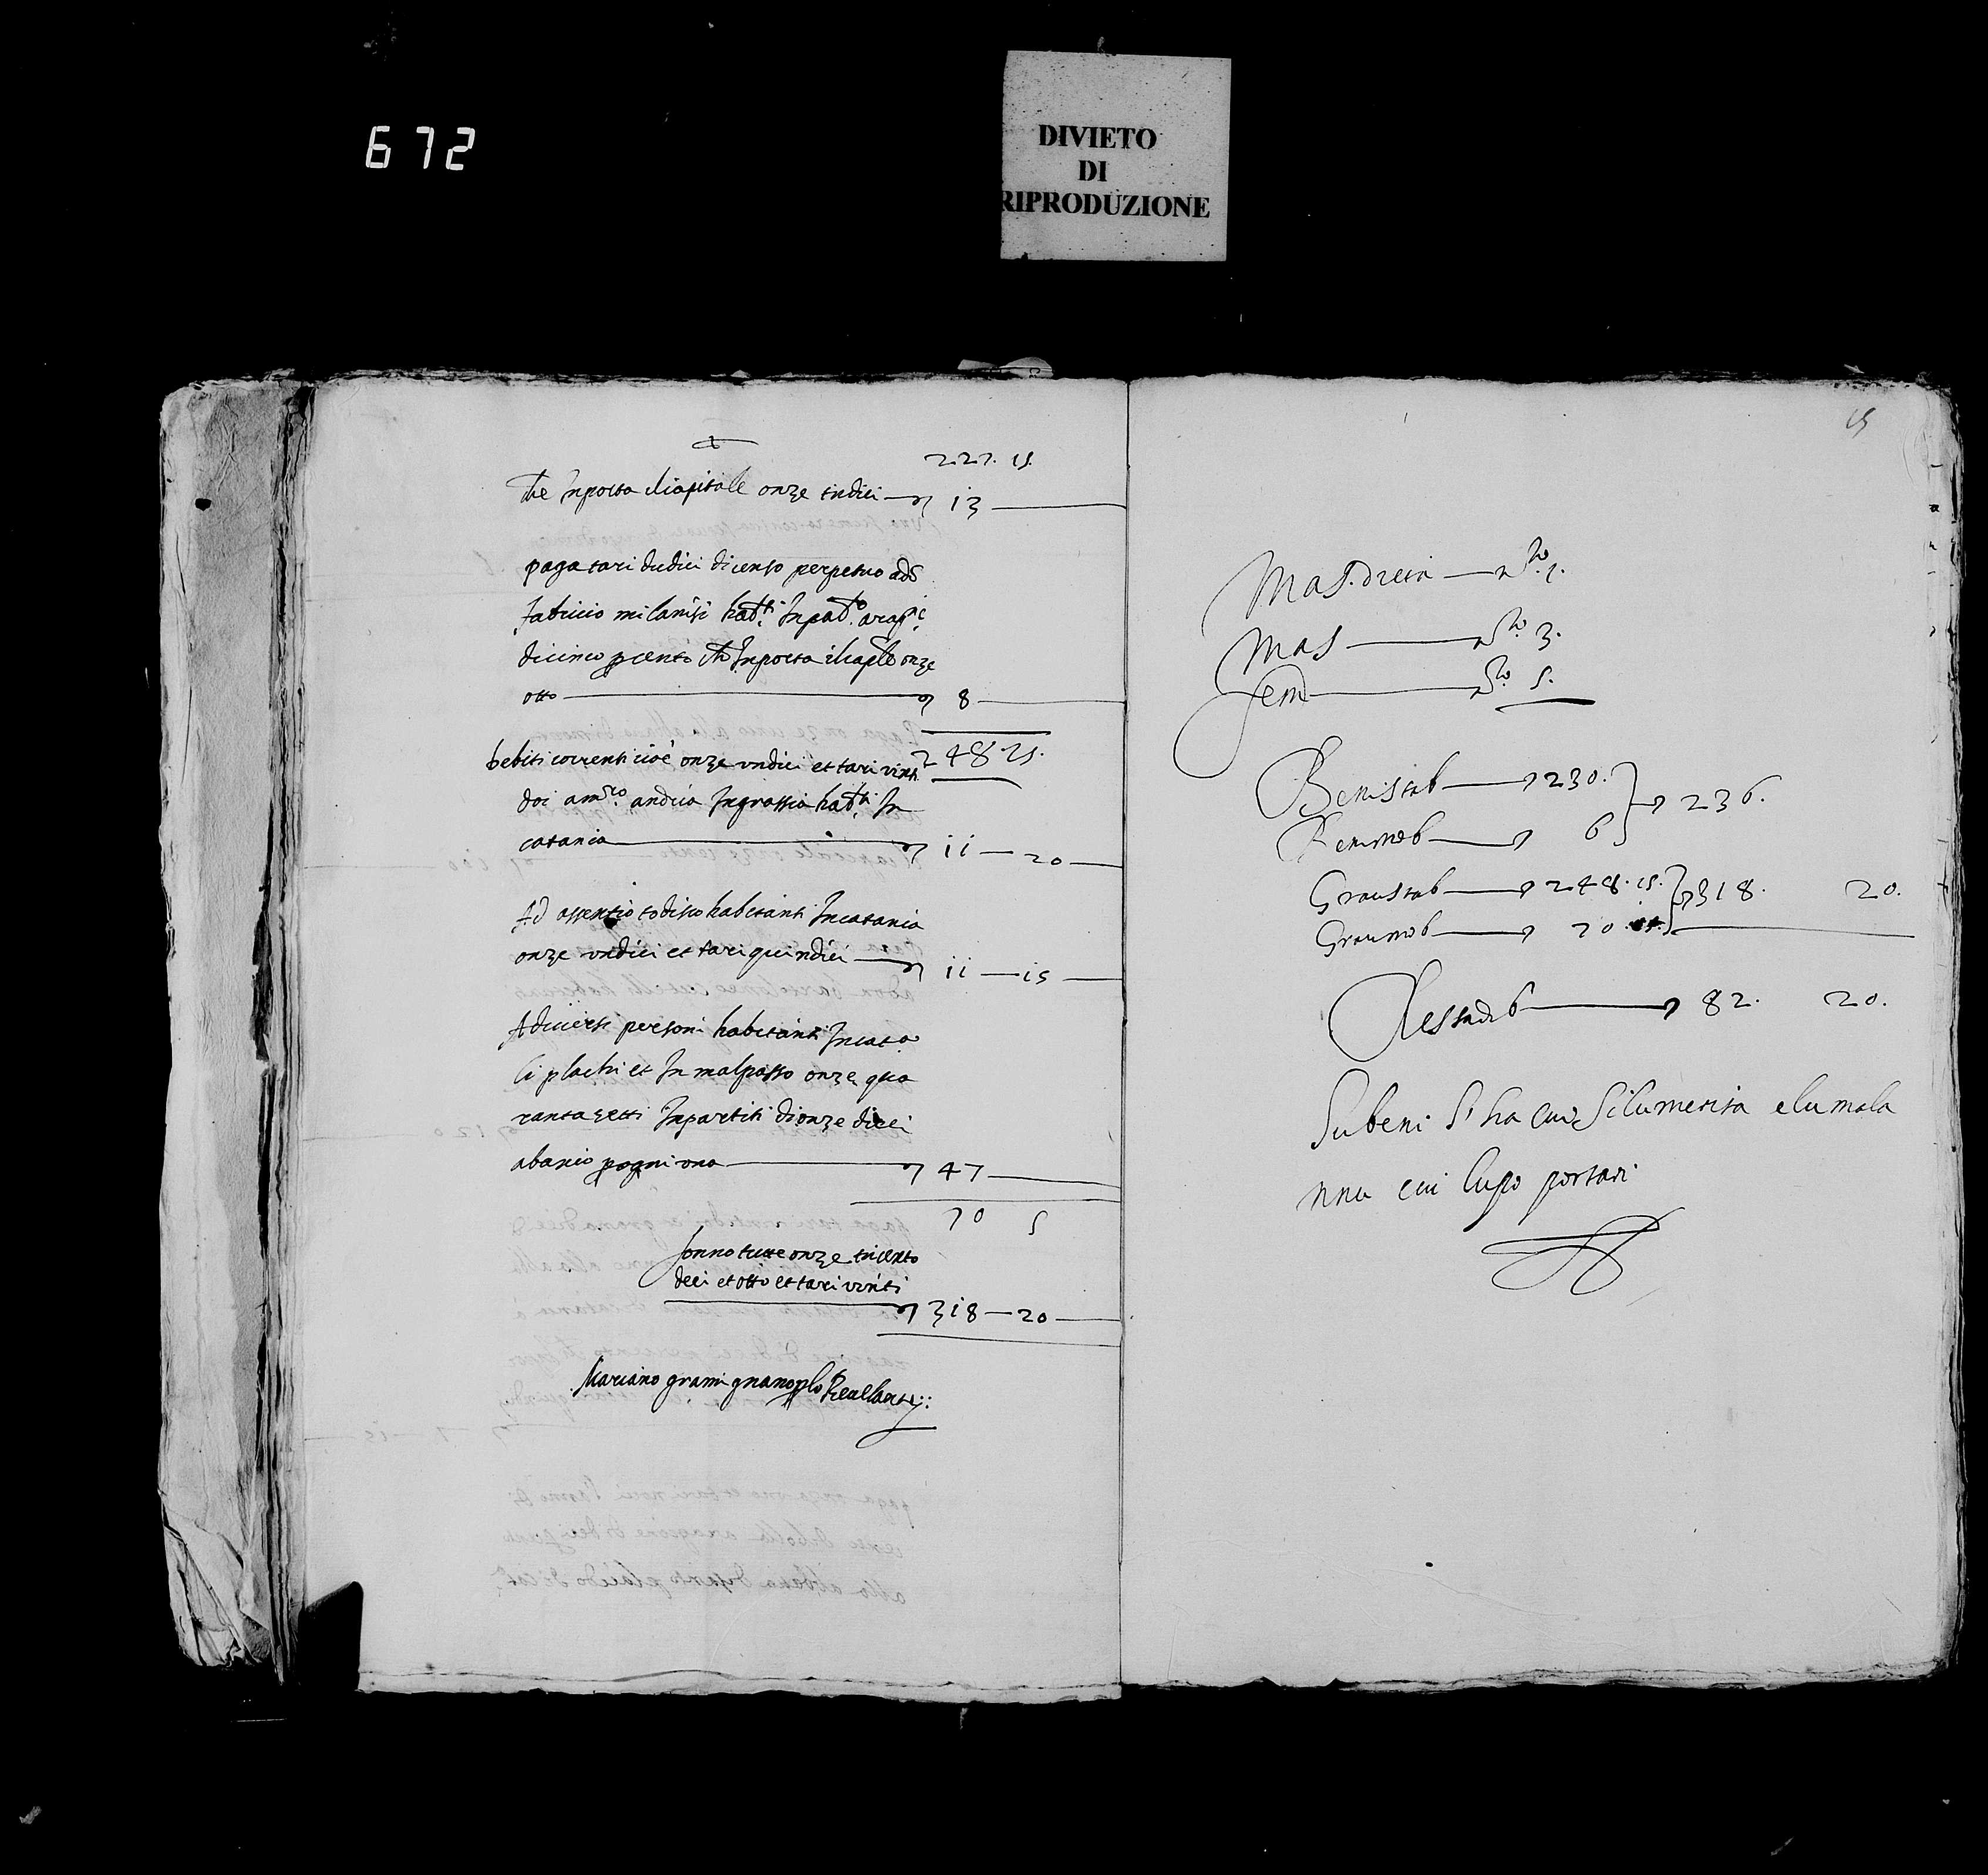 672
DIVIETO
DI
RIPRODUZIONE
227. 15.
che Inporta ilcapitale onze tridici — 13
paga tari dudici dicenso perpetuo ad
fabricio milanisi habti Inpatò
dicinco pcento che Inporta ilcaple onze
otto — 8
248 15.
debiti correnti cioè onze undici et tari vinti
doi andria Ingrassia habti In
catania — 11 — 20
Ad assentio todisco habitanti Incatania
onze undici et tari quindici — 11 — 15
Adiversi personi habitanti Incata
li plachi et In malpasso onze qua
ranta setti Inpartiti dionze dieci
abascio pogni una — 47
70 5
sonno tutte onze tricento
deci et otto et tari vinti
318 — 20
Mariano gramignano plo Revelante
15
Mas. dieta — no. 1.
Mas — no. 3.
fem — no. 5.
Beni stab — 230. } 236.
Beni mob — 6
Grav stab — 248. 15. } 318. 20.
Grav mob — 70
Resta di — 82. 20.
Su beni si ha cui si lu merita e lu mala
nnu cui lu po portari